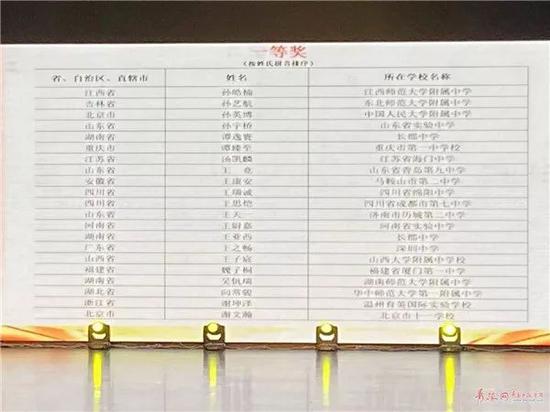 一等奖
（按姓氏拼音排序）
省、自治区、直辖市 姓名 所在学校名称
江西省 孙皓楠 江西师范大学附属中学
吉林省 孙艺航 东北师范大学附属中学
北京市 孙英博 中国人民大学附属中学
山东省 孙宇桥 山东省实验中学
湖南省 谭逸寰 长郡中学
重庆市 谭臻至 重庆市第一中学校
江苏省 汤凯麟 江苏省海门中学
山东省 王 山东省青岛第九中学
安徽省 王康安 马鞍山市第二中学
四川省 王瑞诚 四川省绵阳中学
四川省 王思恺 四川省成都市第七中学
山东省 王天一 济南市历城第二中学
河南省 王尉嘉 河南省实验中学
湖南省 王亚西 长郡中学
广东省 王之畅 深圳中学
山西省 王子宸 山西大学附属中学校
福建省 魏子桐 福建省厦门第一中学
湖南省 吴 湖南师范大学附属中学
湖北省 向常毅 华中师范大学第一附属中学
浙江省 谢坤泽 温州育英国际实验学校
北京市 谢文瀚 北京市十一学校